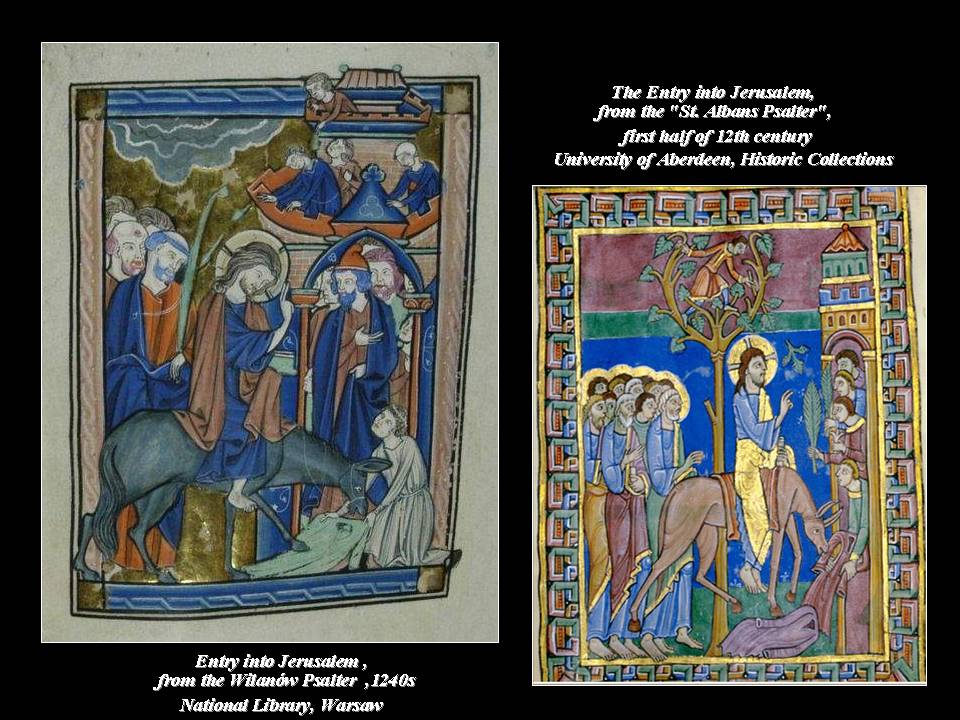 The Entry into Jerusalem,
from the "St. Albans Psalter",
first half of 12th century
University of Aberdeen, Historic Collections
Entry into Jerusalem ,
from the Wilanów Psalter ,1240s
National Library, Warsaw